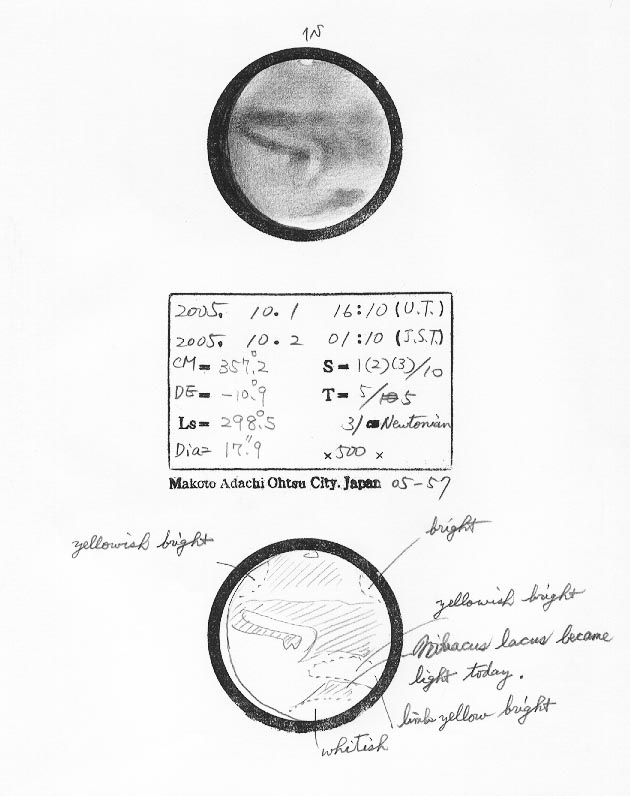 2005. 10. 1 16:10 (U.T.)
2005. 10. 2 01:10 (J.S.T.)
CM= 357.°2 S= 1(2)(3)/10
DE= -10.°9 T= 5/5
Ls= 298.°5 31 Newtonian
Dia= 17."9 ×500 ×
Makoto Adachi Ohtsu City. Japan 05-57
yellowish bright
bright
yellowish bright
lacus became
light today.
limb yellow bright
whitish